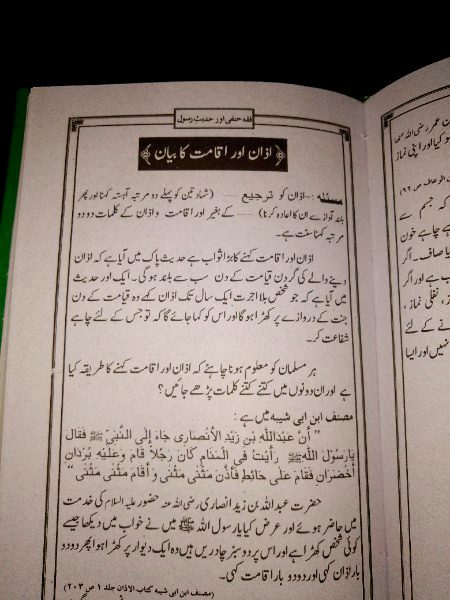 فقہ حنفی اور حدیث رسول
﴿ اذان اور اقامت کا بیان ﴾
مسئلہ :- اذان کو ترجیع ...... (شہادتین کو پہلے دو مرتبہ آہستہ کہنا اور پھر
بلند آواز سے ان کا اعادہ کرنا) ...... کے بغیر اور اقامت و اذان کے کلمات دو دو
مرتبہ کہنا سنت ہے۔
اذان اور اقامت کہنے کا بڑا ثواب ہے حدیث پاک میں آیا ہے کہ اذان
دینے والے کی گردن قیامت کے دن سب سے بلند ہوگی۔ ایک اور حدیث
میں آیا ہے کہ جو شخص بلا اجرت ایک سال تک اذان کہے وہ قیامت کے دن
جنت کے دروازے پر کھڑا ہوگا اور اس کو کہا جائے گا کہ تو جس کے لئے چاہے
شفاعت کر۔
ہر مسلمان کو معلوم ہونا چاہئے کہ اذان اور اقامت کہنے کا طریقہ کیا
ہے اور ان دونوں میں کتنے کتنے کلمات پڑھے جائیں؟
مصنف ابن ابی شیبہ میں ہے :
”أَنَّ عَبْدَاللَّهِ بْنَ زَيْدِ الْأَنْصَارِى جَاءَ إِلَى النَّبِيِّ ﷺ فَقَالَ
يَارَسُوْلَ اللَّهِ ﷺ رَأَيْتُ فِى الْمَنَامِ كَانَ رَجُلاً قَامَ وَعَلَيْهِ بُرْدَانِ
أَخْضَرَانِ فَقَامَ عَلَى حَائِطٍ فَأَذَّنَ مَثْنَى مَثْنَى وَ أَقَامَ مَثْنَى مَثْنَى“
حضرت عبداللہ بن زید انصاری رضی اللہ عنہ حضور علیہ السلام کی خدمت
میں حاضر ہوئے اور عرض کیا یا رسول اللہ ﷺ میں نے خواب میں دیکھا جیسے
کوئی شخص کھڑا ہے اور اس پر دو سبز چادریں ہیں وہ ایک دیوار پر کھڑا ہوا پھر دو دو
بار اذان کہی اور دو دو بار اقامت کہی۔
(مصنف ابن ابی شیبہ کتاب الاذان جلد ۱ ص ۲۰۳)
ن عمر رضی اللہ عنہما
سو کیا اور اپنی نماز
ص ۶۶)
کہ جسم سے
ہے چاہے خون
یا صاف۔ اگر
ہے اور اگر
، نفلی نماز ،
نے کے لئے
نہیں اور ایسا